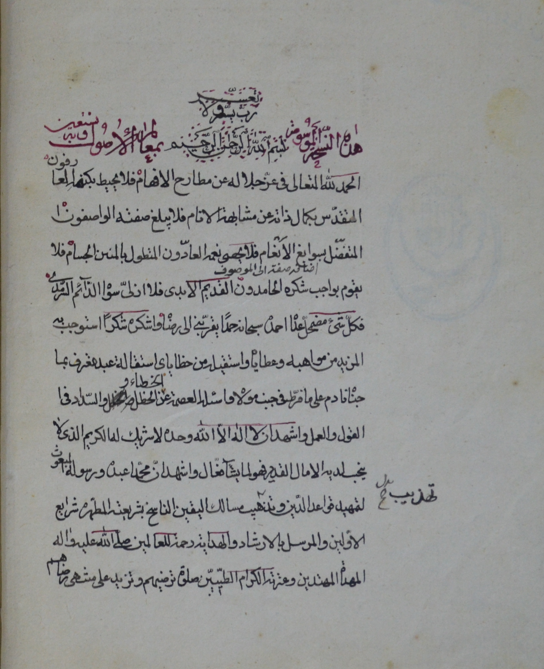 رب يسر ولا تعسر
هذه النسخة الموسوم بسم الله الرحمن الرحيم بمعالم الأصول وبه نستعين
الحمد لله المتعالى فى عز جلاله عن مطارح الافهام فلا يحيط بكنهه العارفون
المتقدس بكمال ذاته عن مشابهة الانام فلا يبلغ صفته الواصفون
المتفضل بسوابغ الانعام فلا يحصى نعمه العادون المتطول بالمنن الجسام فلا
اضافة صفة الى الموصوف
يقوم بواجب شكره الحامدون القديم الابدى فلا ازلى سواه الدائم السرمدى
فكل شىء مضمحل عداه احمده سبحانه حمدا يقربنى الى رضاه واشكره شكرا استوجب به
المزيد من مواهبه وعطاياه واستقيله من خطاياى استقالة عبد معترف بما
جناه نادم على ما فرط فى جنب مولاه واسئله العصمة من الخطاء و الخطل والسداد فى
القول والعمل واشهد ان لا اله الا الله وحده لا شريك له الكريم الذى لا
يخيب لديه الامال القدير فهو لما يشاء فعال واشهد ان محمدا عبده ورسوله المبعوث
لتمهيد قواعد الدين وتهذيب مسالك اليقين الناسخ بشريعته المطهرة شرايع
تهذيب
الاولين والمرسل بالارشاد والهداية رحمة للعالمين صلى الله عليه واله
الهداة المهتدين وعترته الكرام الطيبين صلوة ترضيهم وتزيد على منتهى رضاهم